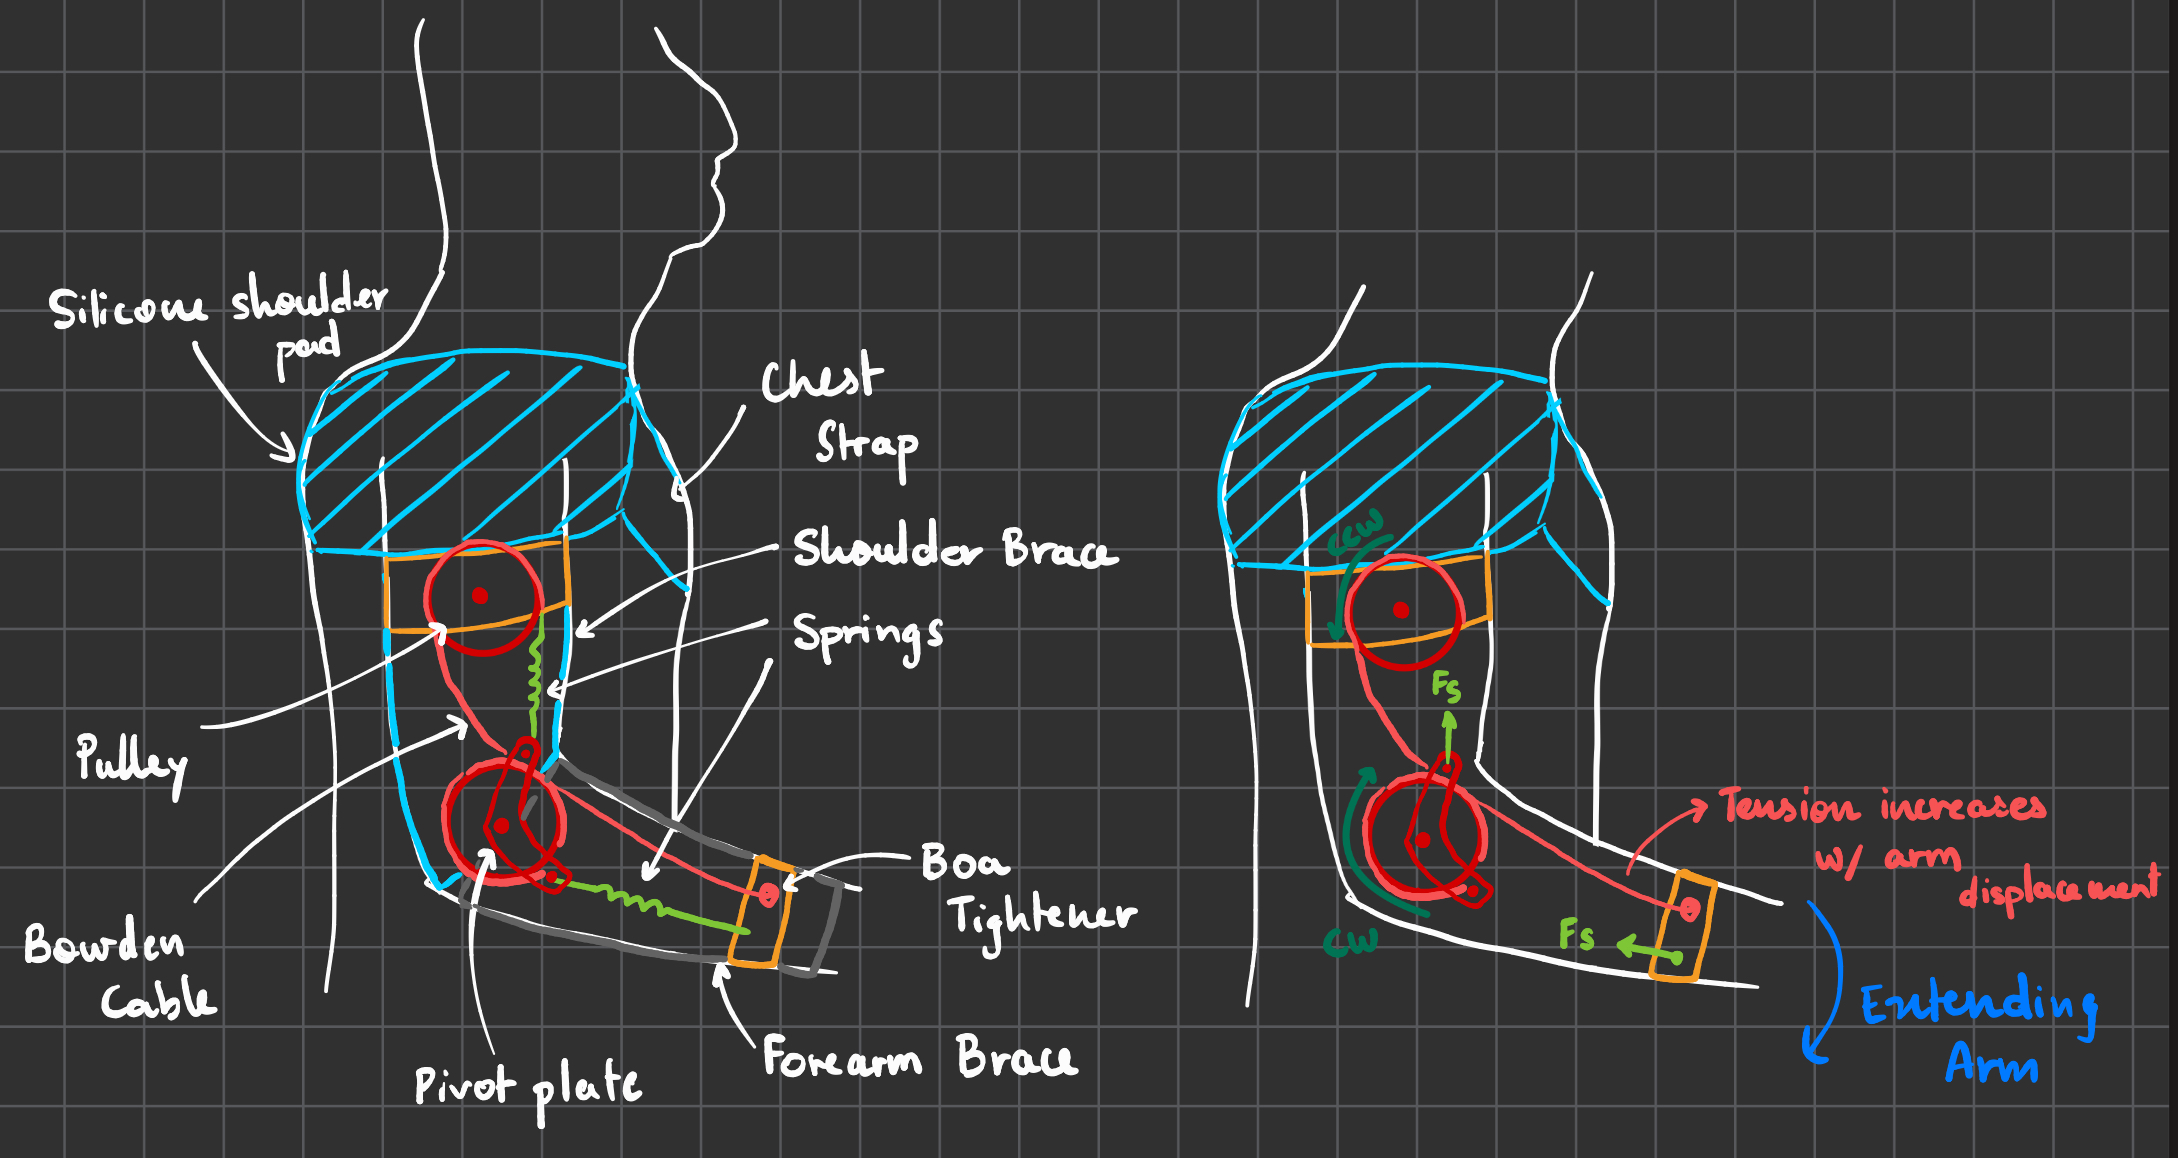 Silicone shoulder
pad
Chest
Strap
Shoulder Brace
Springs
Pulley
Bowden
Cable
Pivot plate
Boa
Tightener
Forearm Brace
CCW
Fs
CW
Fs
Tension increases
w/ arm
displacement
Extending
Arm